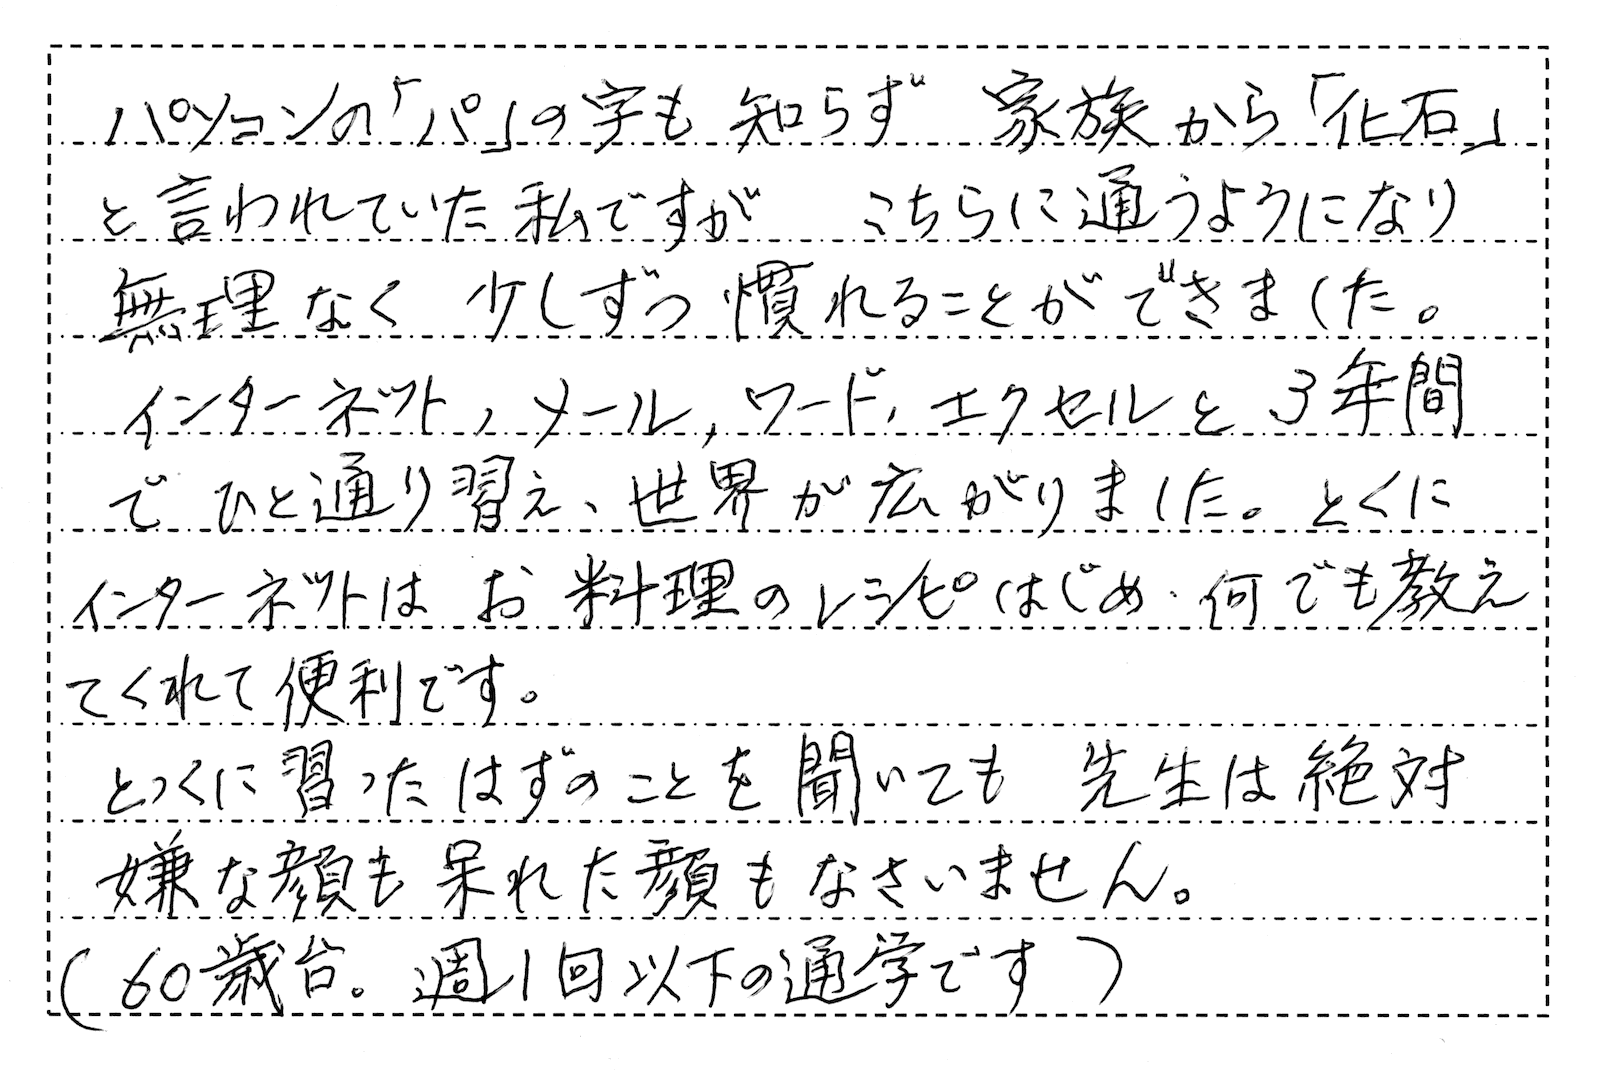 パソコンの「パ」の字も知らず 家族から「化石」
と言われていた私ですが こちらに通うようになり
無理なく 少しずつ慣れることができました。
インターネット,メール,ワード,エクセルと3年間
で ひと通り習え、世界が広がりました。とくに
インターネットは お料理のレシピはじめ、何でも教え
てくれて便利です。
とっくに習ったはずのことを聞いても 先生は絶対
嫌な顔も呆れた顔もなさいません。
(60歳台。週1回以下の通学です)